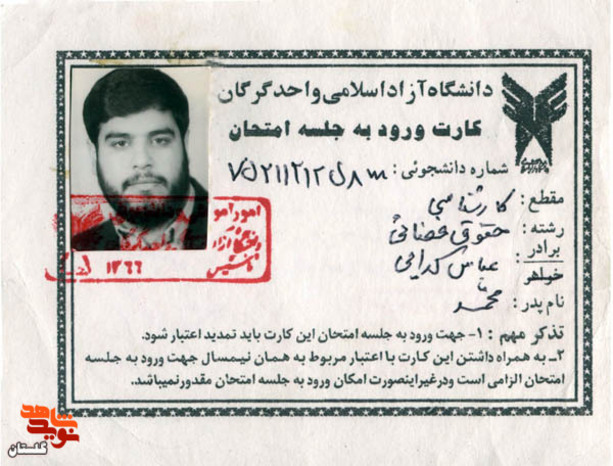 دانشگاه آزاد اسلامی واحد گرگان
کارت ورود به جلسه امتحان
شماره دانشجوئی :
مقطع : کارشناسی
رشته : حقوق قضائی
برادر : عباس
خواهر
نام پدر : محمد
تذکر مهم : ۱- جهت ورود به جلسه امتحان این کارت باید تمدید اعتبار شود.
۲- به همراه داشتن این کارت با اعتبار مربوط به همان نیمسال جهت ورود به جلسه
امتحان الزامی است ودرغیراینصورت امکان ورود به جلسه امتحان مقدورنمیباشد.
امور
آزاد
۱۳۶۶
تاسیس
نوید شاهد
گلستان